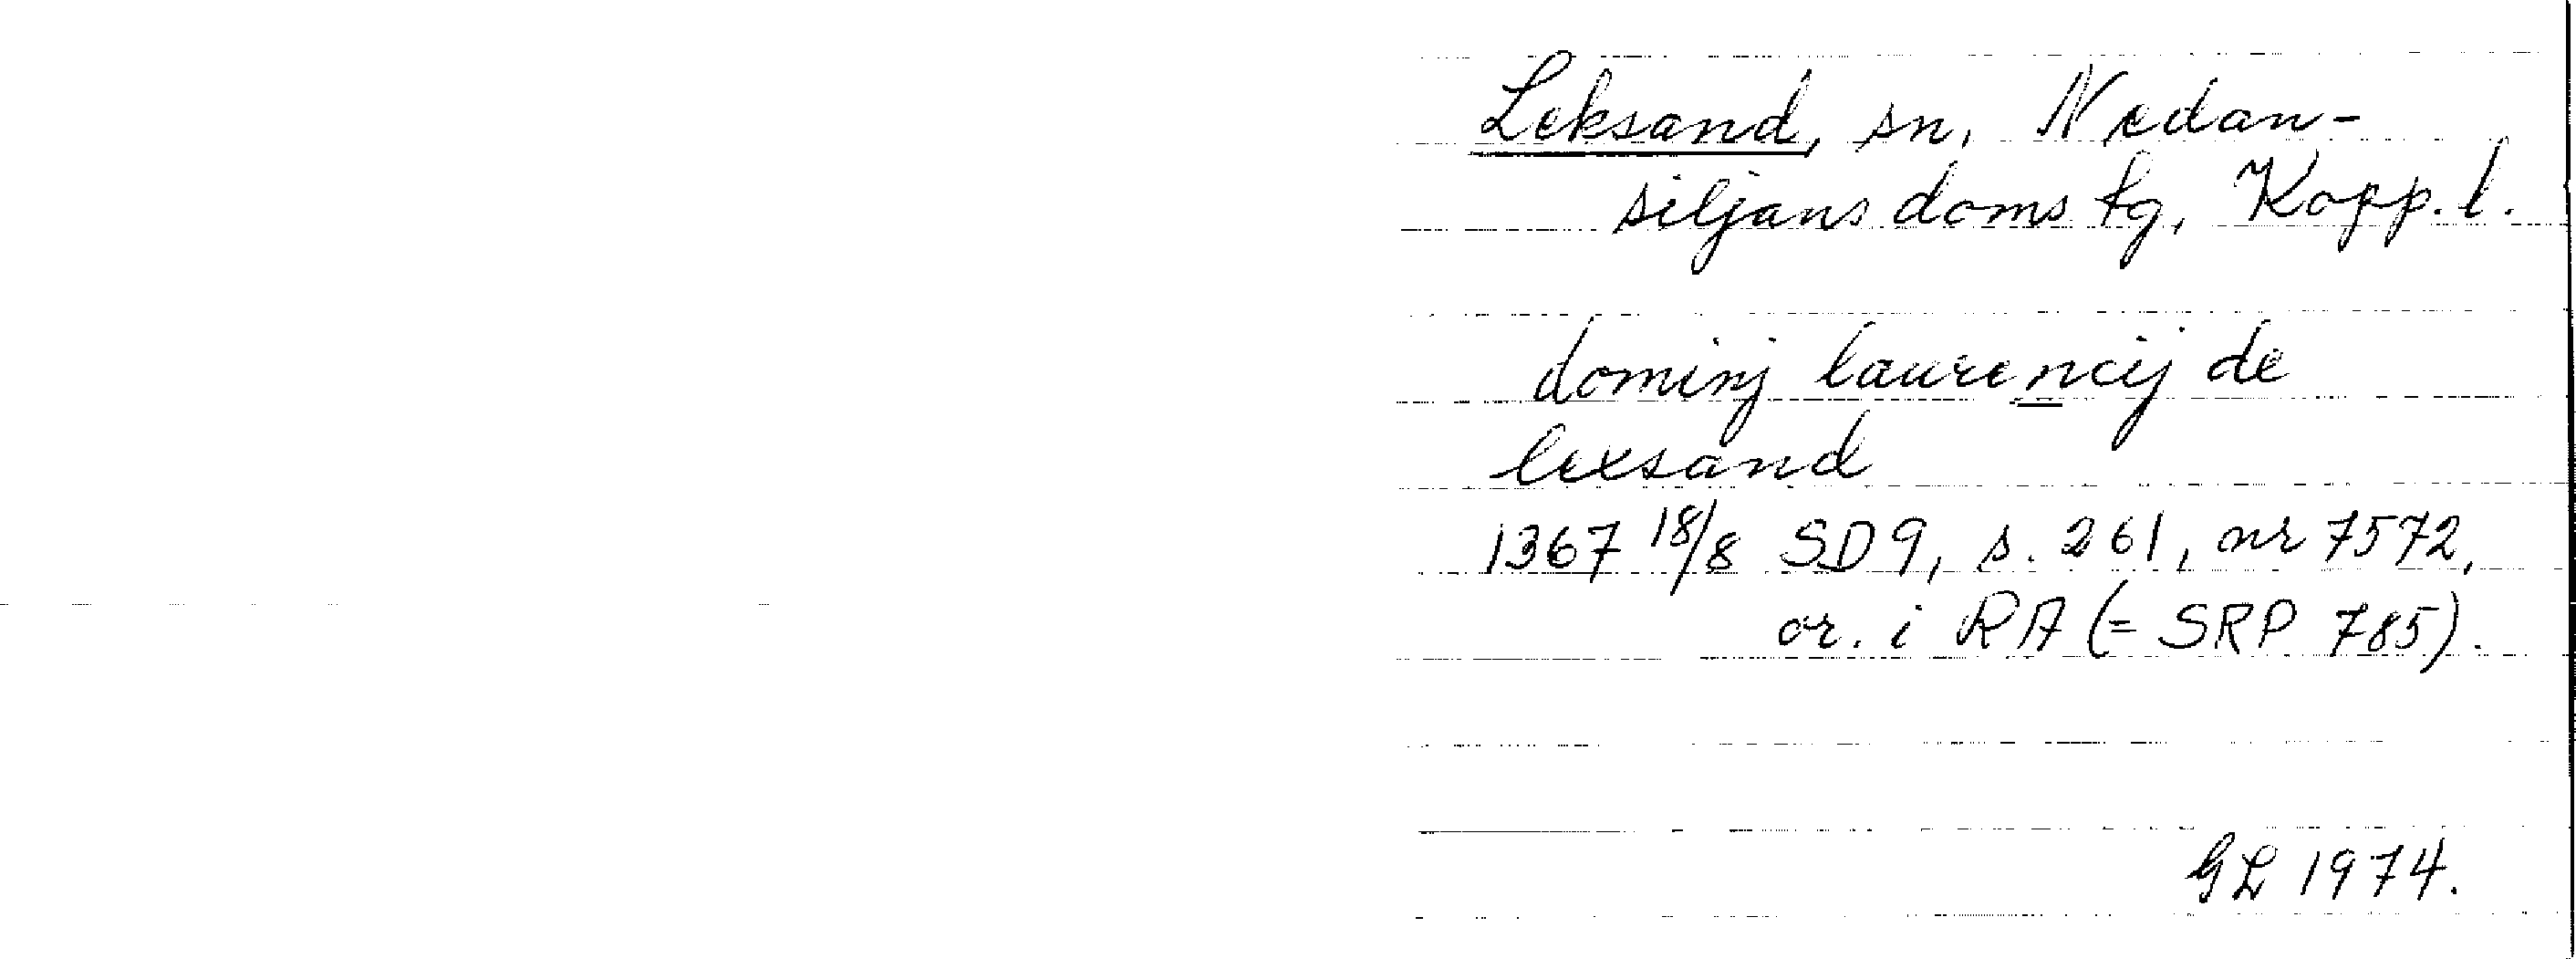 Leksand, sn, Nedan-
siljans doms tg, Kopp. l.
dominj laurencij de
lexsand
1367 18/8 SD 9, s. 261, nr 7572,
or. i RA (= SRP 785).
GL 1974.